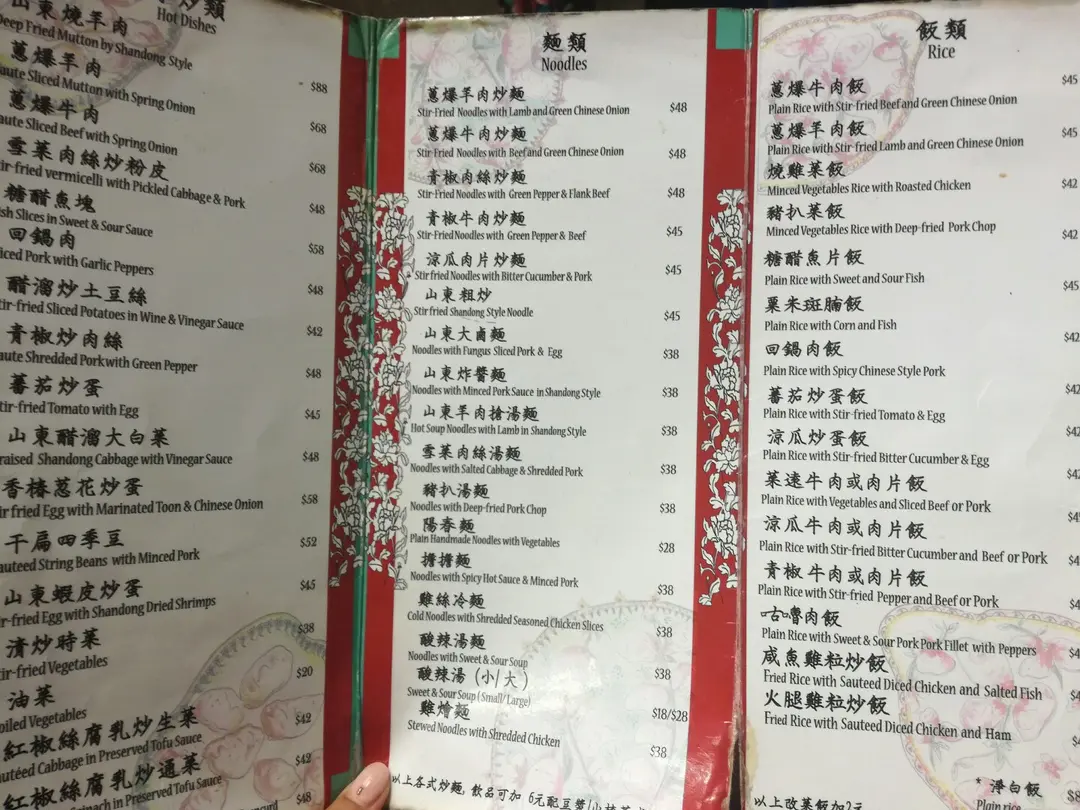 炒類
Hot Dishes
山東燒羊肉
Deep Fried Mutton by Shandong Style
$88
蔥爆羊肉
Sliced Mutton with Spring Onion
$68
蔥爆牛肉
Sliced Beef with Spring Onion
$68
雪菜肉絲炒粉皮
vermicelli with Pickled Cabbage & Pork
$48
糖醋魚塊
Slices in Sweet & Sour Sauce
$58
回鍋肉
Pork with Garlic Peppers
$48
醋溜炒土豆絲
Sliced Potatoes in Wine & Vinegar Sauce
$42
青椒炒肉絲
Shredded Pork with Green Pepper
$48
蕃茄炒蛋
Tomato with Egg
$45
山東醋溜大白菜
Shandong Cabbage with Vinegar Sauce
$48
香椿蔥花炒蛋
Egg with Marinated Toon & Chinese Onion
$58
干扁四季豆
String Beans with Minced Pork
$52
山東蝦皮炒蛋
Egg with Shandong Dried Shrimps
$45
清炒時菜
Vegetables
$38
油菜
Vegetables
$20
紅椒絲腐乳炒生菜
Cabbage in Preserved Tofu Sauce
$42
紅椒絲腐乳炒通菜
in Preserved Tofu Sauce
$42
$48
麵類
Noodles
蔥爆羊肉炒麵
Stir-Fried Noodles with Lamb and Green Chinese Onion
$48
蔥爆牛肉炒麵
Stir-Fried Noodles with Beef and Green Chinese Onion
$48
青椒肉絲炒麵
Stir-Fried Noodles with Green Pepper & Flank Beef
$48
青椒牛肉炒麵
Stir-Fried Noodles with Green Pepper & Beef
$45
涼瓜肉片炒麵
Stir fried Noodles with Bitter Cucumber & Pork
$45
山東粗炒
Stir fried Shandong Style Noodle
$45
山東大鹵麵
Noodles with Fungus Sliced Pork & Egg
$38
山東炸醬麵
Noodles with Minced Pork Sauce in Shandong Style
$38
山東羊肉搶湯麵
Hot Soup Noodles with Lamb in Shandong Style
$38
雪菜肉絲湯麵
Noodles with Salted Cabbage & Shredded Pork
$38
豬扒湯麵
Noodles with Deep-fried Pork Chop
$38
陽春麵
Plain Handmade Noodles with Vegetables
$28
擔擔麵
Noodles with Spicy Hot Sauce & Minced Pork
$38
雞絲冷麵
Cold Noodles with Shredded Seasoned Chicken Slices
$38
酸辣湯麵
Noodles with Sweet & Sour Soup
$38
酸辣湯 (小/大)
Sweet & Sour Soup (Small/Large)
$18/$28
雞燴麵
Stewed Noodles with Shredded Chicken
$38
以上各式炒麵, 飲品可加 6元配豆漿/山
飯類
Rice
蔥爆牛肉飯
Plain Rice with Stir-fried Beef and Green Chinese Onion
$45
蔥爆羊肉飯
Plain Rice with Stir-fried Lamb and Green Chinese Onion
$45
燒雞菜飯
Minced Vegetables Rice with Roasted Chicken
$42
豬扒菜飯
Minced Vegetables Rice with Deep-fried Pork Chop
$42
糖醋魚片飯
Plain Rice with Sweet and Sour Fish
$45
粟米斑腩飯
Plain Rice with Corn and Fish
$42
回鍋肉飯
Plain Rice with Spicy Chinese Style Pork
蕃茄炒蛋飯
Plain Rice with Stir-fried Tomato & Egg
涼瓜炒蛋飯
Plain Rice with Stir-fried Bitter Cucumber & Egg
菜遠牛肉或肉片飯
Plain Rice with Vegetables and Sliced Beef or Pork
涼瓜牛肉或肉片飯
Plain Rice with Stir-fried Bitter Cucumber and Beef or Pork
青椒牛肉或肉片飯
Plain Rice with Stir-fried Pepper and Beef or Pork
咕嚕肉飯
Plain Rice with Sweet & Sour Pork Pork Fillet with Peppers
咸魚雞粒炒飯
Fried Rice with Sauteed Diced Chicken and Salted Fish
火腿雞粒炒飯
Fried Rice with Sauteed Diced Chicken and Ham
* 淨白飯
Plain rice
$8
以上改菜飯加2元